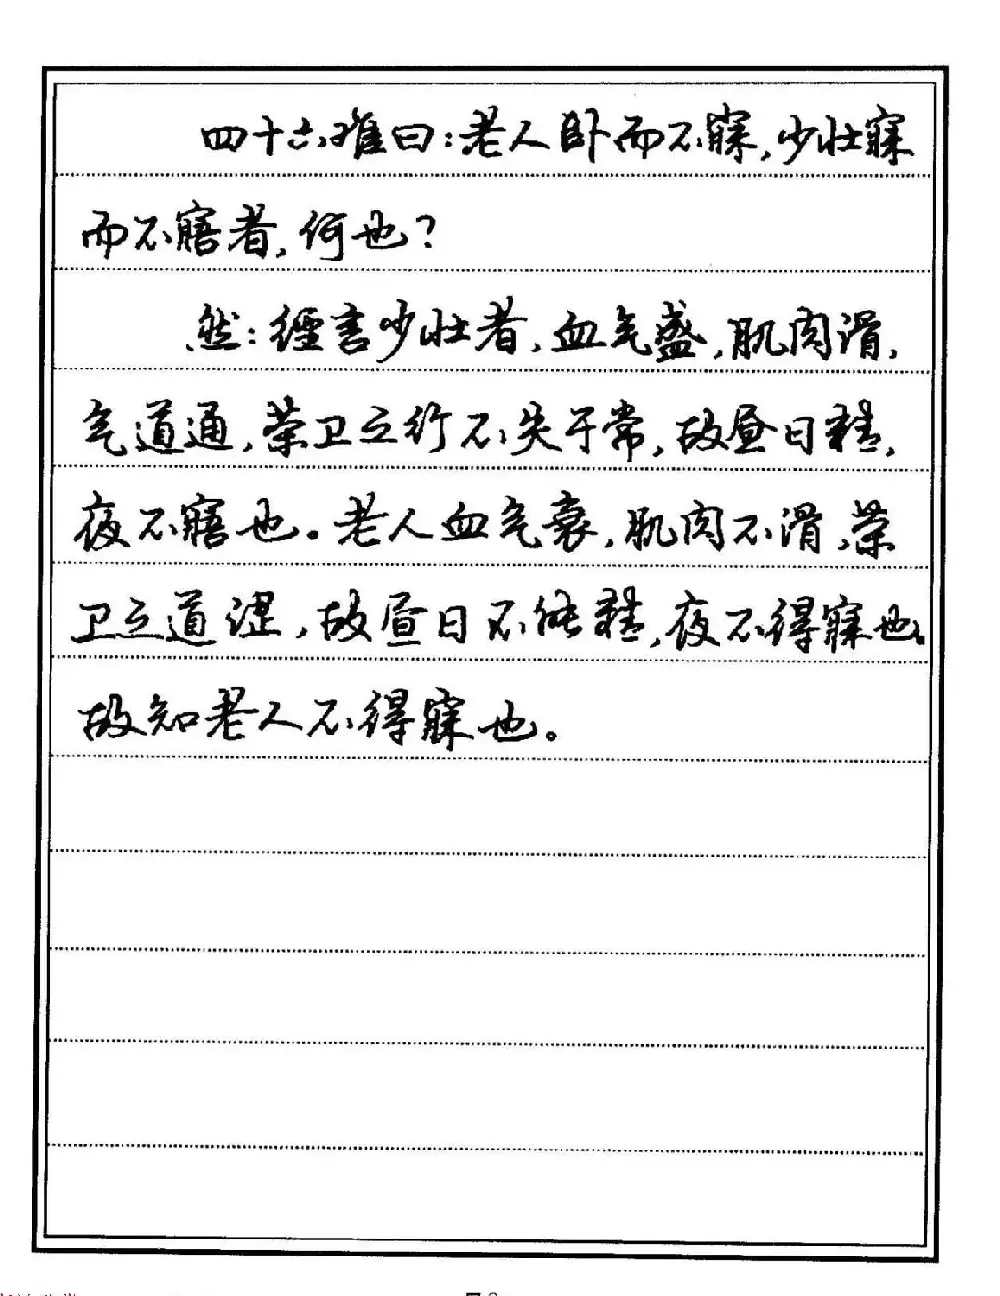 四十六难曰:老人卧而不寐,少壮寐
而不寤者,何也?
然:经言少壮者,血气盛,肌肉滑,
气道通,荣卫之行不失于常,故昼日精,
夜不寤也。老人血气衰,肌肉不滑,荣
卫之道涩,故昼日不能精,夜不得寐也。
故知老人不得寐也。